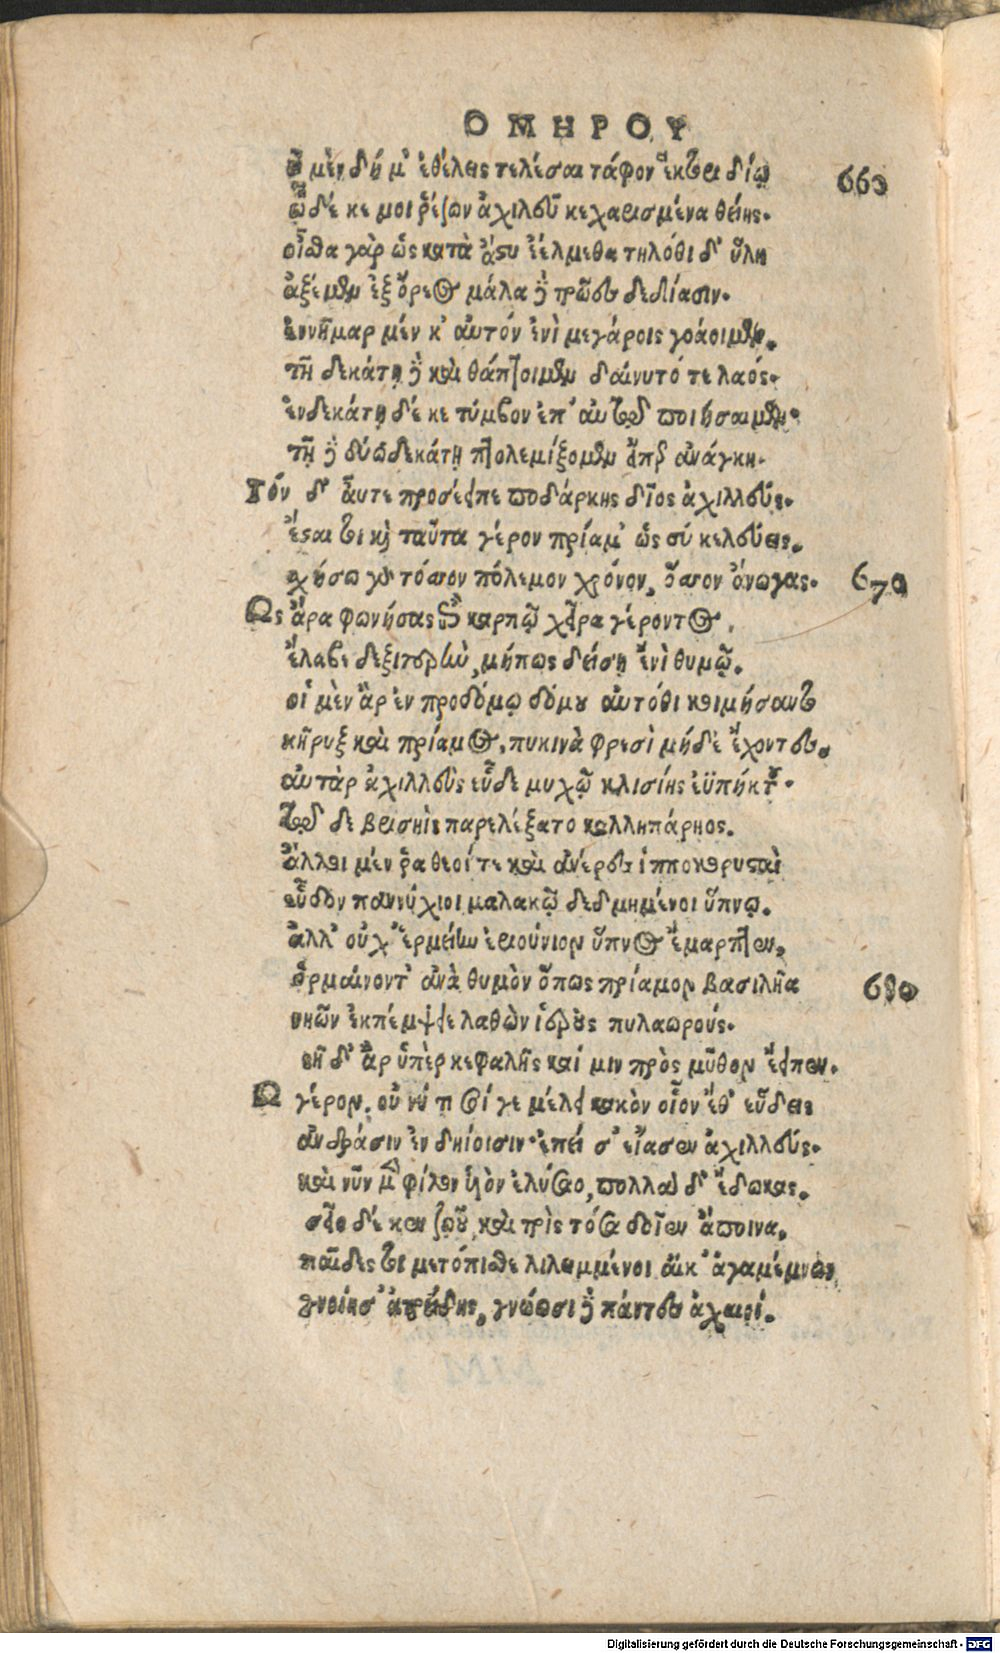 ΟΜΗΡΟΥ
εἰ μὲν δή μ' ἐθέλεις τελέσαι τάφον ἕκτορι δίῳ
660
ὧδέ κε μοι ῥέζων ἀχιλεῦ κεχαρισμένα θείης.
οἶσθα γὰρ ὡς κατὰ ἄστυ ἐέλμεθα τηλόθι δ' ὕλη
ἀξέμεν ἐξ ὄρεος μάλα δὲ τρῶες δεδίασιν.
ἐννῆμαρ μέν κ' αὐτόν ἐνὶ μεγάροις γοάοιμεν.
τῇ δεκάτῃ δὲ καὶ θάπτοιμεν δαίνυτό τε λαός.
ἑνδεκάτῃ δέ κε τύμβον ἐπ' αὐτῷ ποιήσαιμεν.
τῇ δὲ δυωδεκάτῃ πτολεμίξομεν εἴπερ ἀνάγκη.
Τόν δ' αὖτε προσέειπε ποδάρκης δῖος ἀχιλλεύς.
ἔσται τοι καὶ ταῦτα γέρον πρίαμ' ὡς σύ κελεύεις.
σχήσω γὰρ τόσσον πόλεμον χρόνον, ὅσσον ἄνωγας.
670
Ως ἄρα φωνήσας ἐπὶ καρπῷ χεῖρα γέροντος,
ἔλαβε δεξιτερὴν, μήπως δείσῃ ἐνὶ θυμῷ.
οἱ μὲν ἂρ ἐν προδόμῳ δόμου αὐτόθι κοιμήσαντο
κῆρυξ καὶ πρίαμος, πυκινὰ φρεσὶ μήδε' ἔχοντες.
αὐτὰρ ἀχιλλεὺς εὗδε μυχῷ κλισίης ἐϋπήκτου.
τῷ δὲ βρισηὶς παρελέξατο καλλιπάρηος.
ἄλλοι μέν ῥα θεοί τε καὶ ἀνέρες ἱπποκορυσταὶ
εὗδον παννύχιοι μαλακῷ δεδμημένοι ὕπνῳ.
ἀλλ' οὐχ ἑρμείην ἐριούνιον ὕπνος ἔμαρπτεν,
ὁρμαίνοντ' ἀνὰ θυμὸν ὅπως πρίαμον βασιλῆα
680
νηῶν ἐκπέμψειε λαθὼν ἱεροὺς πυλαωρούς.
στῆ δ' ἂρ ὑπὲρ κεφαλῆς καί μιν πρὸς μῦθον ἔειπεν.
Ω γέρον, οὔ νύ τι σοί γε μέλει κακὸν οἷον ἔθ' εὕδεις
ἀνδράσιν ἐν δηίοισιν ἐπεί σ' εἴασεν ἀχιλλεύς.
καὶ νῦν μὲν φίλον υἱὸν ἐλύσαο, πολλὰ δ' ἔδωκας.
σεῖο δέ κεν ζωοῦ, καὶ τρὶς τόσα δοῖεν ἄποινα,
παῖδες τοὶ μετόπισθε λιλειμμένοι αἴκ' ἀγαμέμνων
γνοίησ' ἀτρείδης, γνώωσι δὲ πάντες ἀχαιοί.
Digitalisierung gefördert durch die Deutsche Forschungsgemeinschaft - DFG